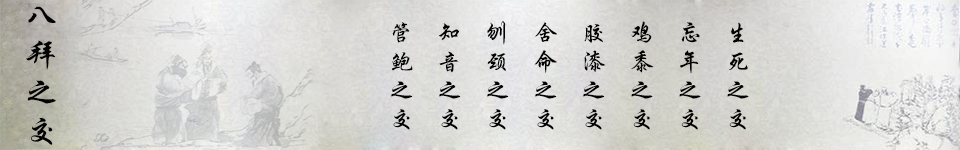 八拜之交
管鲍之交
知音之交
刎颈之交
舍命之交
胶漆之交
鸡黍之交
忘年之交
生死之交